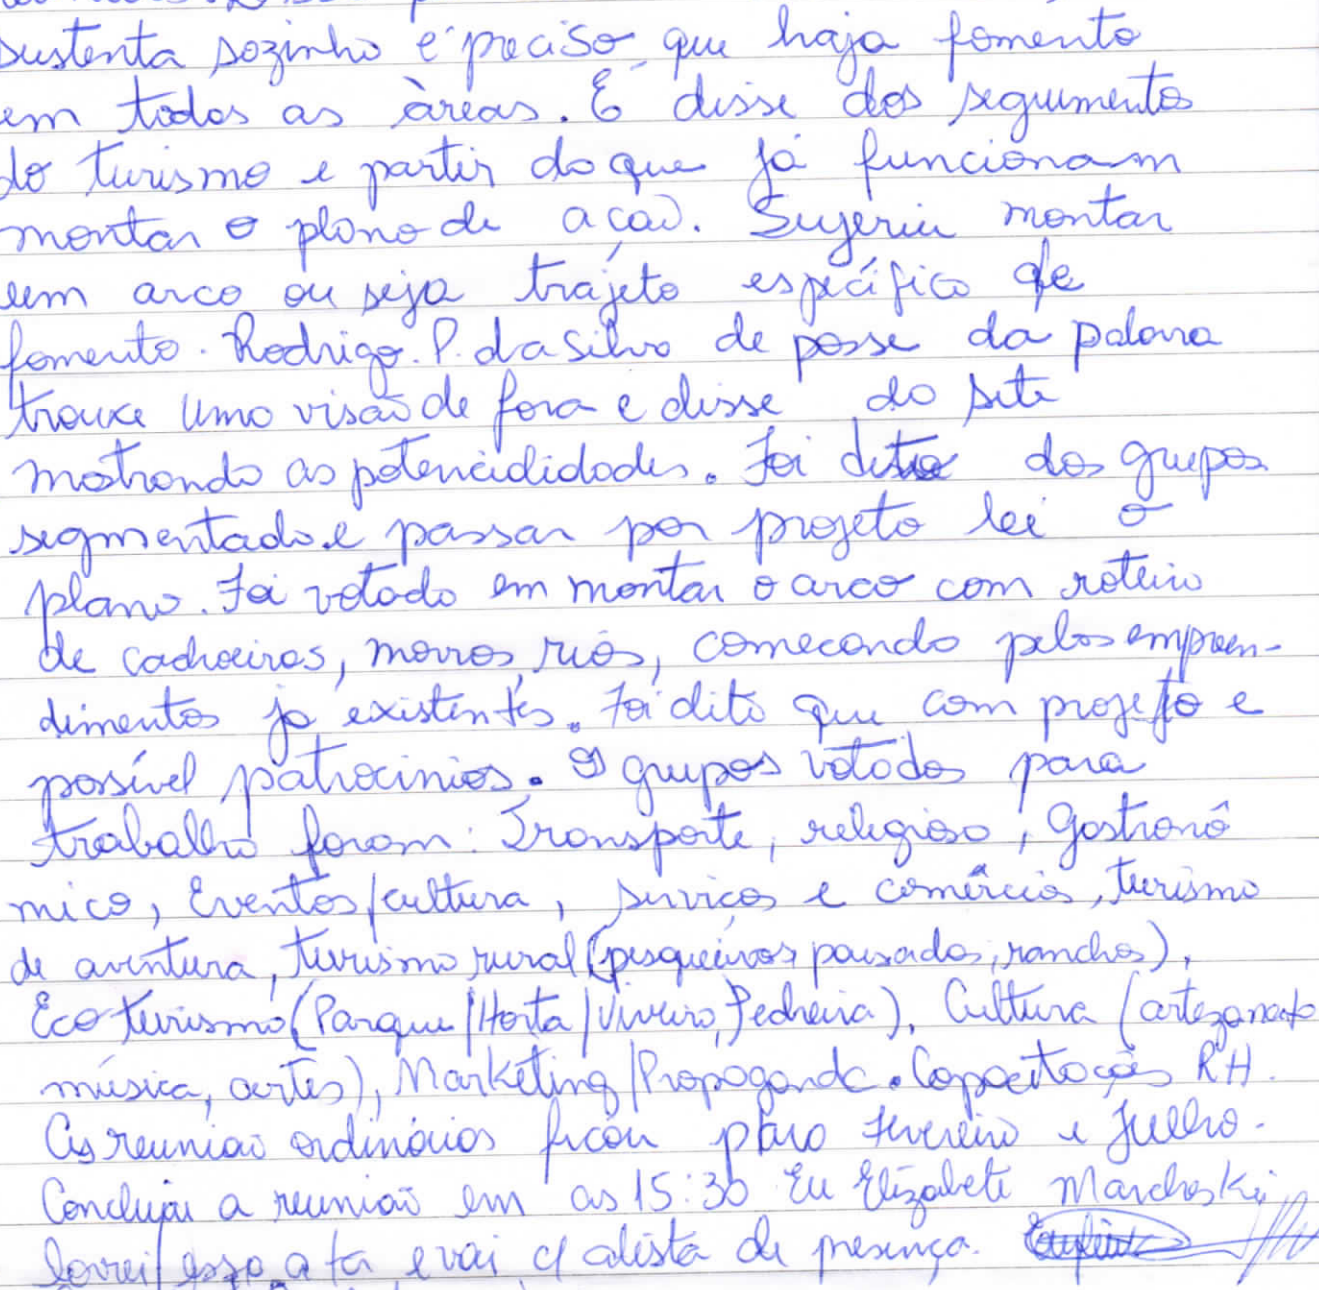 sustenta sozinho e preciso que haja fomento
em todas as àreas. E disse dos seguimentos
do turismo e partir do que já funcionam
montar o plano de açaõ. Sugeriu montar
um arco ou seja trajeto especifico de
fomento. Rodrigo P. da Silva de posse da palavra
trouxe uma visaõ de fora e disse do site
mostrando as potencialidades. Foi dito dos grupos
segmentado e passar por projeto lei o
plano. Foi votado em montar o arco com roteiro
de cachoeiras, morros, rios, comecando pelos empreen-
dimentos ja existentes. Foi dito que com projeto e
possível patrocinios. Os grupos votados para
trabalho foram: Transporte, religioso, Gastronô
mico, Eventos/cultura, serviços e comércio, turismo
de aventura, turismo rural (pesqueiros, pousadas, ranchos),
Eco turismo (Parque/Horta/Viveiro, Pedreira), Cultura (artezanato
música, artes), Marketing/Propaganda. Capacitações RH.
As reuniaõ ordinárias ficou para fevereiro e Julho.
Concluiu a reuniaõ em as 15:30 Eu Elizabete Marcheski
lavrei essa ata e vai c/ a lista de presença.